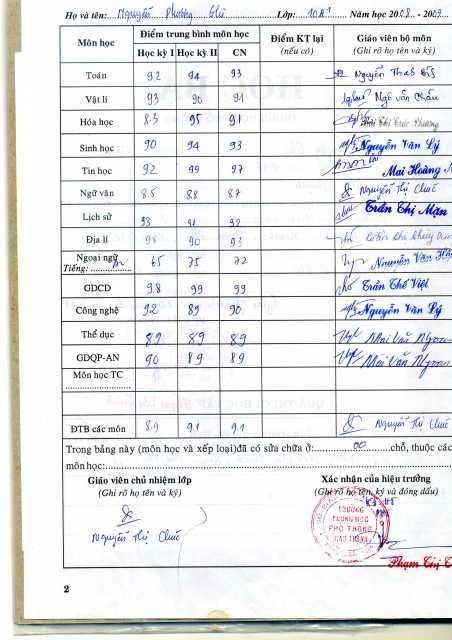 Họ và tên: Nguyễn Phương Lớp: 10A1 Năm học 2008 - 2009
Môn học Điểm trung bình môn học Điểm KT lại (nếu có) Giáo viên bộ môn (Ghi rõ họ tên và ký)
Học kỳ I Học kỳ II CN
Toán 9.2 9.4 9.3 Nguyễn
Vật lí 9.3 9.0 9.1 Ngô Văn
Hóa học 8.3 9.5 9.1 Thị Trúc Phương
Sinh học 9.0 9.4 9.3 Nguyễn Văn Lý
Tin học 9.2 9.9 9.7 Mai Hoàng
Ngữ văn 8.5 8.8 8.7 Nguyễn Thị Chúc
Lịch sử 9.3 9.1 9.2 Trần Thị Mận
Địa lí 9.8 9.0 9.3
Ngoại ngữ 6.5 7.5 7.2 Nguyễn Văn
Tiếng:
GDCD 9.8 9.9 9.9 Trần Thế Việt
Công nghệ 9.2 8.9 9.0 Nguyễn Văn Lý
Thể dục 8.9 8.9 8.9 Mai Văn Ngoan
GDQP-AN 9.0 8.9 8.9 Mai Văn Ngoan
Môn học TC
ĐTB các môn 8.9 9.1 9.1 Nguyễn Thị Chúc
Trong bảng này (môn học và xếp loại)đã có sửa chữa ở: 00 chỗ, thuộc các
môn học:
Giáo viên chủ nhiệm lớp Xác nhận của hiệu trưởng
(Ghi rõ họ tên và ký) (Ghi rõ họ tên, ký và đóng dấu)
TRƯỜNG
TRUNG HỌC
PHỔ THÔNG
Nguyễn Thị Chúc
Phạm Thị
2